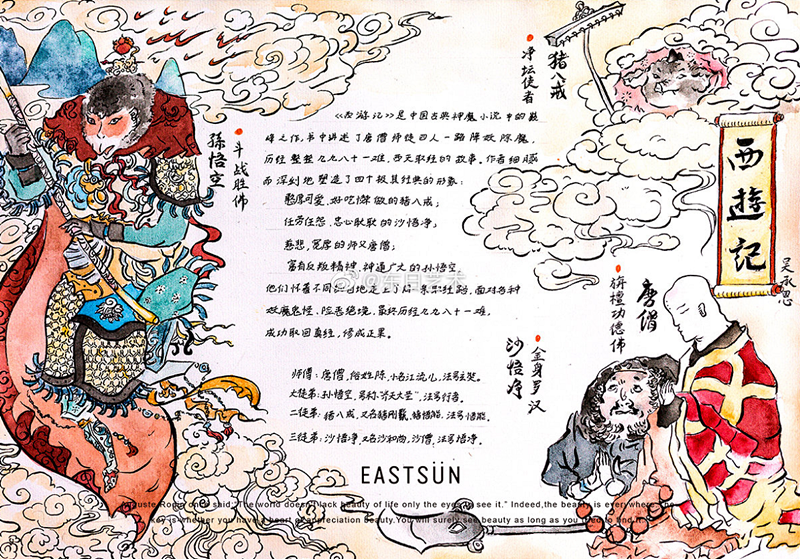 西遊記
吴承恩
猪八戒
净坛使者
孙悟空
斗战胜佛
唐僧
旃檀功德佛
沙悟净
金身罗汉
《西游记》是中国古典神魔小说中的巅
峰之作,书中讲述了唐僧师徒四人一路降妖除魔,
历经整整九九八十一难,西天取经的故事。作者细腻
而深刻地塑造了四个极其经典的形象:
憨厚可爱、好吃懒做的猪八戒;
任劳任怨、忠心耿耿的沙悟净;
慈悲、宽厚的师父唐僧;
富有反叛精神,神通广大的孙悟空,
他们怀着不同的目的走上了同一条取经路,面对各种
妖魔鬼怪、险恶绝境,最终历经九九八十一难,
成功取回真经,修成正果。
师傅:唐僧,俗姓陈,小名江流儿,法号玄奘。
大徒弟:孙悟空,号称“齐天大圣”,法号行者。
二徒弟:猪八戒,又名猪刚鬣,猪悟能,法号悟能。
三徒弟:沙悟净,又名沙和尚,沙僧,法号悟净。
@东日艺术
EASTSÜN
Auguste Rodin once said,"The world doesn't lack beauty of life only the eye to see it." Indeed,the beauty is everywhere.The
key is whether you have a heart of appreciation beauty.You will surely see beauty as long as you need to find it.